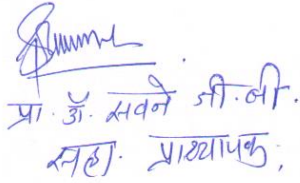 प्रा. डॉ. सवने जी.जी.
सहा. प्राध्यापक.